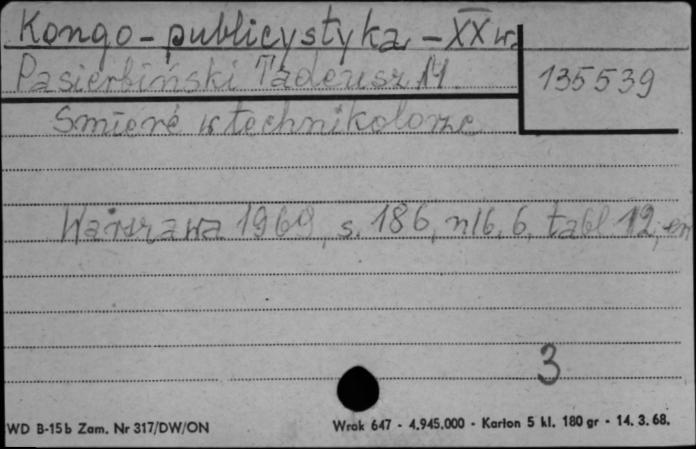 Kongo - publicystyka - XX w.
Pasierbiński Tadeusz M.
135539
Śmierć w technikolorze
Warszawa 1969, s. 186, nlb. 6, tabl 12,
3
WD B-15b Zam. Nr 317/DW/ON
Wrok 647 - 4.945.000 - Karton 5 kl. 180 gr - 14. 3. 68.